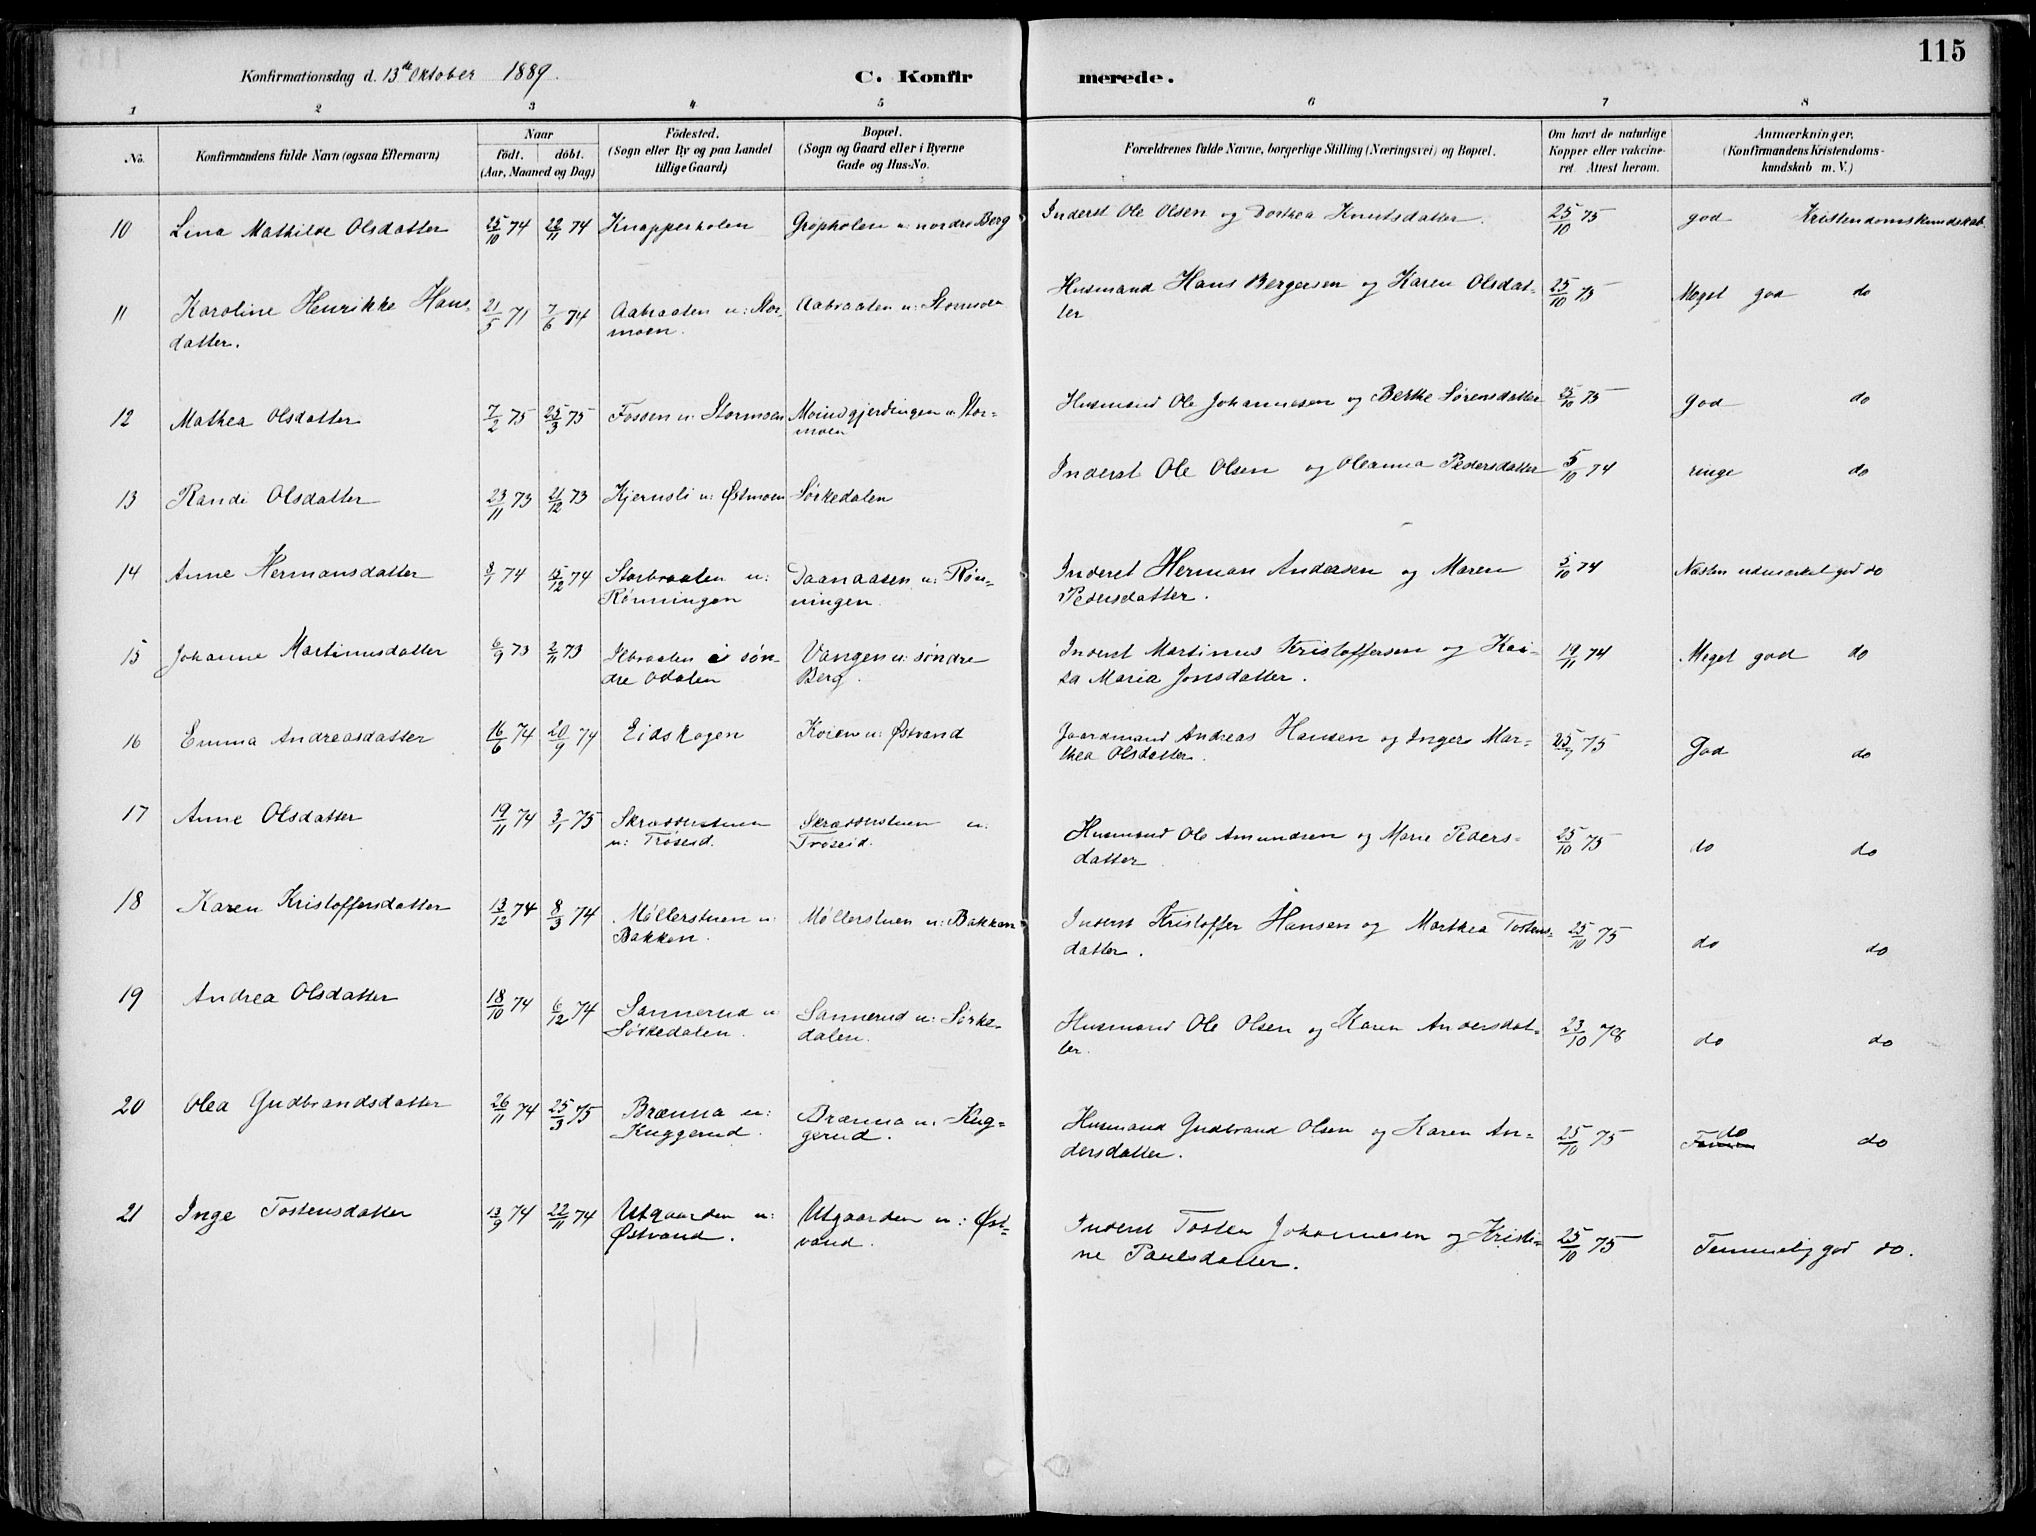 115
Konfirmationsdag d. 13de Oktober 1889.
C. Konfirmerede.
1 2 3 4 5 6 7 8
No.
Konfirmandens fulde Navn (ogsaa Efternavn)
Naar
födt. döbt.
(Aar, Maaned og Dag)
Födested.
(Sogn eller By og paa Landet
tillige Gaard)
Bopæl.
(Sogn og Gaard eller i Byerne
Gade og Hus-No.
Forældrenes fulde Navne, borgerlige Stilling (Næringsvei) og Bopæl.
Om havt de naturlige
Kopper eller vakcine-
ret. Attest herom.
Anmærkninger,
(Konfirmandens Kristendoms-
kundskab m. V.)
10 Lina Mathilde Olsdatter 25/10 74 22/11 74 Knapperholen Grøpholen u: nordre Berg Inderst Ole Olsen og Dorthea Knutsdatter. 25/10 75 god Kristendomskundskab.
11 Karoline Henrikke Hans- 21/5 71 7/6 74 Aabraaten u: Stor- Aabraaten u: Stormoen Husmand Hans Bergersen og Karen Olsdat- 25/10 75 Meget god do
datter. moen. ter
12 Mathea Olsdatter 7/2 75 25/3 75 Fossen u: Stormoen Moindgjerdingen u. Stor- Husmand Ole Johannesen og Berthe Sørensdatter 25/10 75 god do
moen
13 Randi Olsdatter 23/11 73 21/12 73 Kjernsli u: Østmoen Sørkedalen Inderst Ole Olsen og Oleanna Pedersdatter 5/10 74 ringe do
14 Anne Hermansdatter 8/1 74 15/12 74 Storbraaten u: Daanaasen u: Røn- Inderst Herman Andersen og Maren 5/10 74 Næsten udmærket god do
Rønningen ningen. Pedersdatter.
15 Johanne Martinusdatter 6/9 73 2/11 73 Ilbraaten i søn- Vangen u: søndre Inderst Martinus Kristoffersen og Kai- 19/11 74 Meget god do
dre Odalen Berg. sa Maria Jonsdatter.
16 Emma Andreasdatter 16/6 74 20/9 74 Eidskogen Koien u: Østvand Gaardmand Andreas Hansen og Inger Mar- 25/7 75 God do
thea Olsdatter.
17 Anne Olsdatter 19/11 74 3/1 75 Skrædderstuen Skrædderstuen u: Husmand Ole Amundsen og Marie Peders- 25/10 75 do do
u: Trøseid. Trøseid. datter
18 Karen Kristoffersdatter 13/12 74 8/3 74 Møllerstuen u: Møllerstuen u: Bakken Inderst Kristoffer Hansen og Marthea Tostens- 25/10 75 do do
Bakken. datter.
19 Andrea Olsdatter 18/10 74 6/12 74 Sannerud u: Sannerud u: Sørke- Husmand Ole Olsen og Karen Andersdat- 23/10 78 do do
Sørkedalen. dalen. ter.
20 Olea Gudbrandsdatter 26/11 74 25/3 75 Brænna u: Brænna u: Kug- Husmand Gudbrand Olsen og Karen An- 25/10 75 do do
Kuggerud. gerud. dersdatter.
21 Inge Tostensdatter 13/9 74 22/11 74 Utgaarden u: Utgaarden u: Øst- Inderst Tosten Johannesen og Kristi- 25/10 75 Temmelig god do.
Østvand. vand. ne Paulsdatter.